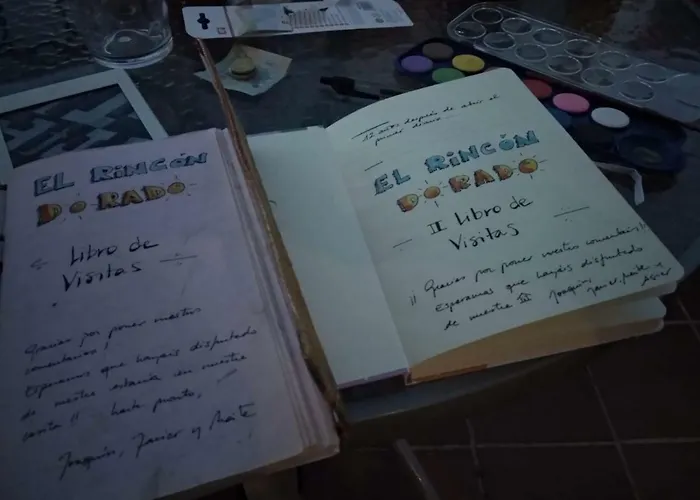 EL RINCÓN
DORADO
Libro de
Visitas
Gracias por poner vuestros
comentarios!
Esperamos que hayáis disfrutado
de vuestra estancia en nuestra
casita!! hasta pronto,
Joaquín, Javier y Maite
12 años después de abrir el
primer
EL RINCÓN
DORADO
II Libro de
Visitas
¡¡Gracias por poner vuestros comentarios!!
Esperamos que hayáis disfrutado
de nuestra Joaquín, Javier, Maite y